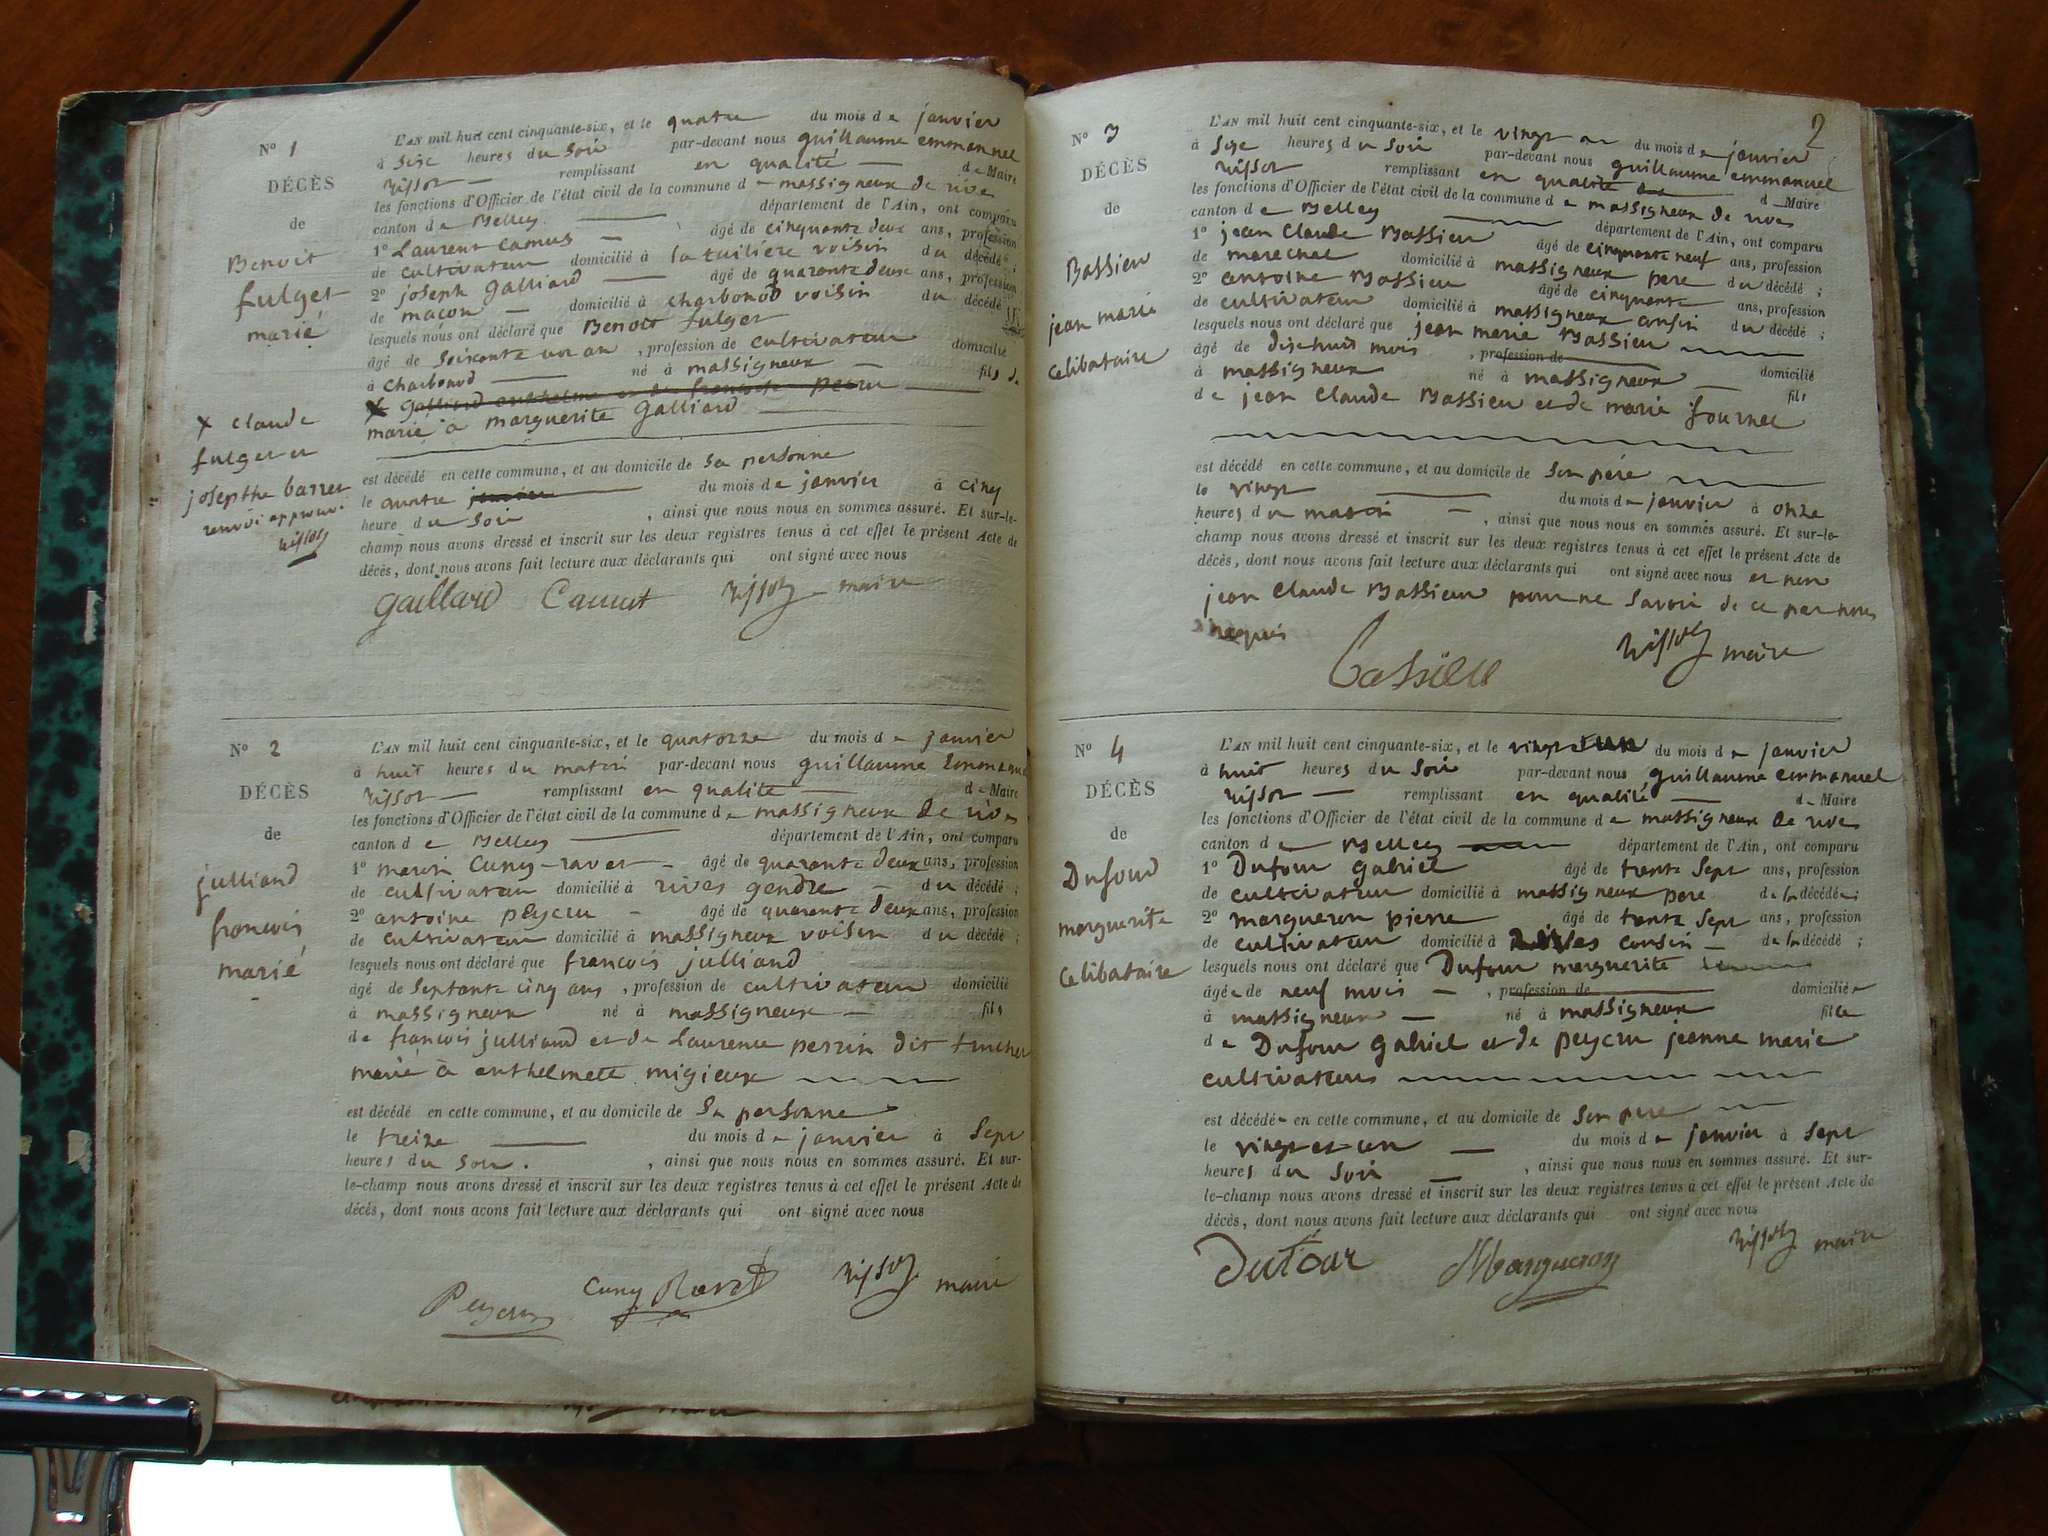 N° 1
DÉCÈS
de
Benoit
fulger
marié
X claude
fulger et
josepthe barret
renvoi approuvé
Rissot
L'AN mil huit cent cinquante-six, et le quatre du mois de janvier
à Seize heures du Soir par-devant nous guillaume emmanuel
Rissot remplissant en qualité de Maire
les fonctions d'Officier de l'état civil de la commune de massigneux de rive
canton de Belley département de l'Ain, ont comparu
1° Laurent Camus âgé de cinquante deux ans, profession
de cultivateur domicilié à la tuilière voisin du décédé ;
2° joseph Galliard âgé de quarante deux ans, profession
de maçon domicilié à charbonod voisin du décédé
lesquels nous ont déclaré que Benoit fulger
âgé de Soixante un an , profession de cultivateur domicilié
à Charbonod né à massigneux fils de
marié à marguerite Galliard
est décédé en cette commune, et au domicile de Sa personne
le quatre du mois de janvier à cinq
heure du Soir , ainsi que nous nous en sommes assuré. Et sur-le-
champ nous avons dressé et inscrit sur les deux registres tenus à cet effet le présent Acte de
décès, dont nous avons fait lecture aux déclarants qui ont signé avec nous
gaillard Camut Rissot maire
N° 2
DÉCÈS
de
julliand
francois
marié
L'AN mil huit cent cinquante-six, et le quatorze du mois de janvier
à huit heures du matin par-devant nous guillaume Emmanuel
Rissot remplissant en qualité de Maire
les fonctions d'Officier de l'état civil de la commune de massigneux de rives
canton de Belley département de l'Ain, ont comparu
1° marin Cuny-ravet âgé de quarante deux ans, profession
de cultivateur domicilié à rives gendre du décédé ;
2° antoine peycru âgé de quarante deux ans, profession
de cultivateur domicilié à massigneux voisin du décédé ;
lesquels nous ont déclaré que francois julliand
âgé de Septante cinq ans , profession de cultivateur domicilié
à massigneux né à massigneux fils
de francois julliand et de Laurence perrin dit
marié à anthelmette migieux
est décédé en cette commune, et au domicile de Sa personne
le treize du mois de janvier à Sept
heures du Soir. , ainsi que nous nous en sommes assuré. Et sur-
le-champ nous avons dressé et inscrit sur les deux registres tenus à cet effet le présent Acte de
décès, dont nous avons fait lecture aux déclarants qui ont signé avec nous
Peycru Cuny Ravet Rissot maire
2
N° 3
DÉCÈS
de
Bassieu
jean marie
celibataire
L'AN mil huit cent cinquante-six, et le vingt du mois de janvier
à Seize heures du Soir par-devant nous guillaume emmanuel
Rissot remplissant en qualité de Maire
les fonctions d'Officier de l'état civil de la commune de massigneux de rives
canton de Belley département de l'Ain, ont comparu
1° jean Claude Bassieu âgé de cinquante neuf ans, profession
de marechal domicilié à massigneux pere du décédé ;
2° antoine Bassieu âgé de cinquante ans, profession
de cultivateur domicilié à massigneux cousin du décédé ;
lesquels nous ont déclaré que jean marie Bassieu
âgé de dixhuit mois , profession de domicilié
à massigneux né à massigneux fils
de jean Claude Bassieu et de marie fournel
est décédé en cette commune, et au domicile de Son père
le vingt du mois de janvier à onze
heures du matin , ainsi que nous nous en sommes assuré. Et sur-le-
champ nous avons dressé et inscrit sur les deux registres tenus à cet effet le présent Acte de
décès, dont nous avons fait lecture aux déclarants qui ont signé avec nous et non
jean Claude Bassieu pour ne Savoir de ce par nous
requis
Bassieu Rissot maire
N° 4
DÉCÈS
de
Dufour
marguerite
celibataire
L'AN mil huit cent cinquante-six, et le vingt du mois de janvier
à huit heures du Soir par-devant nous guillaume emmanuel
Rissot remplissant en qualité de Maire
les fonctions d'Officier de l'état civil de la commune de massigneux de rives
canton de Belley département de l'Ain, ont comparu
1° Dufour gabriel âgé de trente Sept ans, profession
de cultivateur domicilié à massigneux pere de la décédée ;
2° margueron pierre âgé de trente Sept ans, profession
de cultivateur domicilié à Rives cousin de la décédé ;
lesquels nous ont déclaré que Dufour marguerite
âgée de neuf mois , profession de domiciliée
à massigneux né à massigneux fille
de Dufour gabriel et de peycru jeanne marie
cultivateurs
est décédée en cette commune, et au domicile de Son pere
le vingt et un du mois de janvier à Sept
heures du Soir , ainsi que nous nous en sommes assuré. Et sur-
le-champ nous avons dressé et inscrit sur les deux registres tenus à cet effet le présent Acte de
décès, dont nous avons fait lecture aux déclarants qui ont signé avec nous
Dufour Margueron Rissot maire